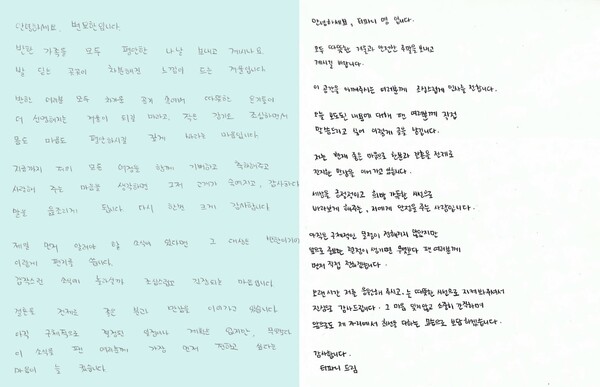 안녕하세요, 변요한입니다.
반한 가족들 모두 평안한 나날 보내고 계시나요
발 딛는 공기마다 차분해진 느낌이 드는 겨울입니다.
반한 여러분 모두 차가운 공기 속에서 따뜻한 온기들이
더 선명해지는 겨울이 되길 바라고, 작은 감기도 조심하면서
몸도 마음도 평안하시길 깊게 바라는 마음입니다.
지금까지 저의 모든 여정을 함께 기뻐하고 축하해주고
사랑해 주는 마음을 생각하면 그저 고개가 숙여지고, 감사하다
말을 읊조리게 됩니다. 다시 한번 크게 감사합니다.
제일 먼저 알려야 할 소식에 있다면 그 대상은 반한이기에
이렇게 편지를 씁니다.
갑작스런 소식에 놀라실까 조심스럽고 긴장되는 마음입니다.
결혼을 전제로 좋은 분과 만남을 이어가고 있습니다.
아직 구체적으로 결정된 일정이나 계획은 없지만, 무엇보다
이 소식을 팬 여러분께 가장 먼저 전하고 싶다는
마음이 늘 컸습니다.
안녕하세요, 티파니 영 입니다.
모두 따뜻한 겨울과 안전한 주말을 보내고
계시길 바랍니다.
이 공간을 아껴주시는 여러분께 조심스럽게 인사를 전합니다.
오늘 보도된 내용에 대해 팬 여러분께 직접
말씀드리고 싶어 이렇게 글을 남깁니다.
저는 현재 좋은 마음으로 한분과 결혼을 전제로
진지한 만남을 이어 가고 있습니다.
세상을 긍정적이고 희망 가득한 시선으로
바라보게 해주는, 저에게 안정을 주는 사람입니다.
아직은 구체적인 일정이 정해지지 않았지만
앞으로 중요한 결정이 생기면 무엇보다 팬 여러분께
먼저 직접 전하겠습니다.
오랜시간 저를 응원해 주시고, 늘 따뜻한 시선으로 지켜봐주셔서
진심으로 감사드립니다. 그 마음 잊지않고 소중히 간직하며
앞으로도 제 자리에서 최선을 다하는 모습으로 보답하겠습니다.
감사합니다.
티파니 드림